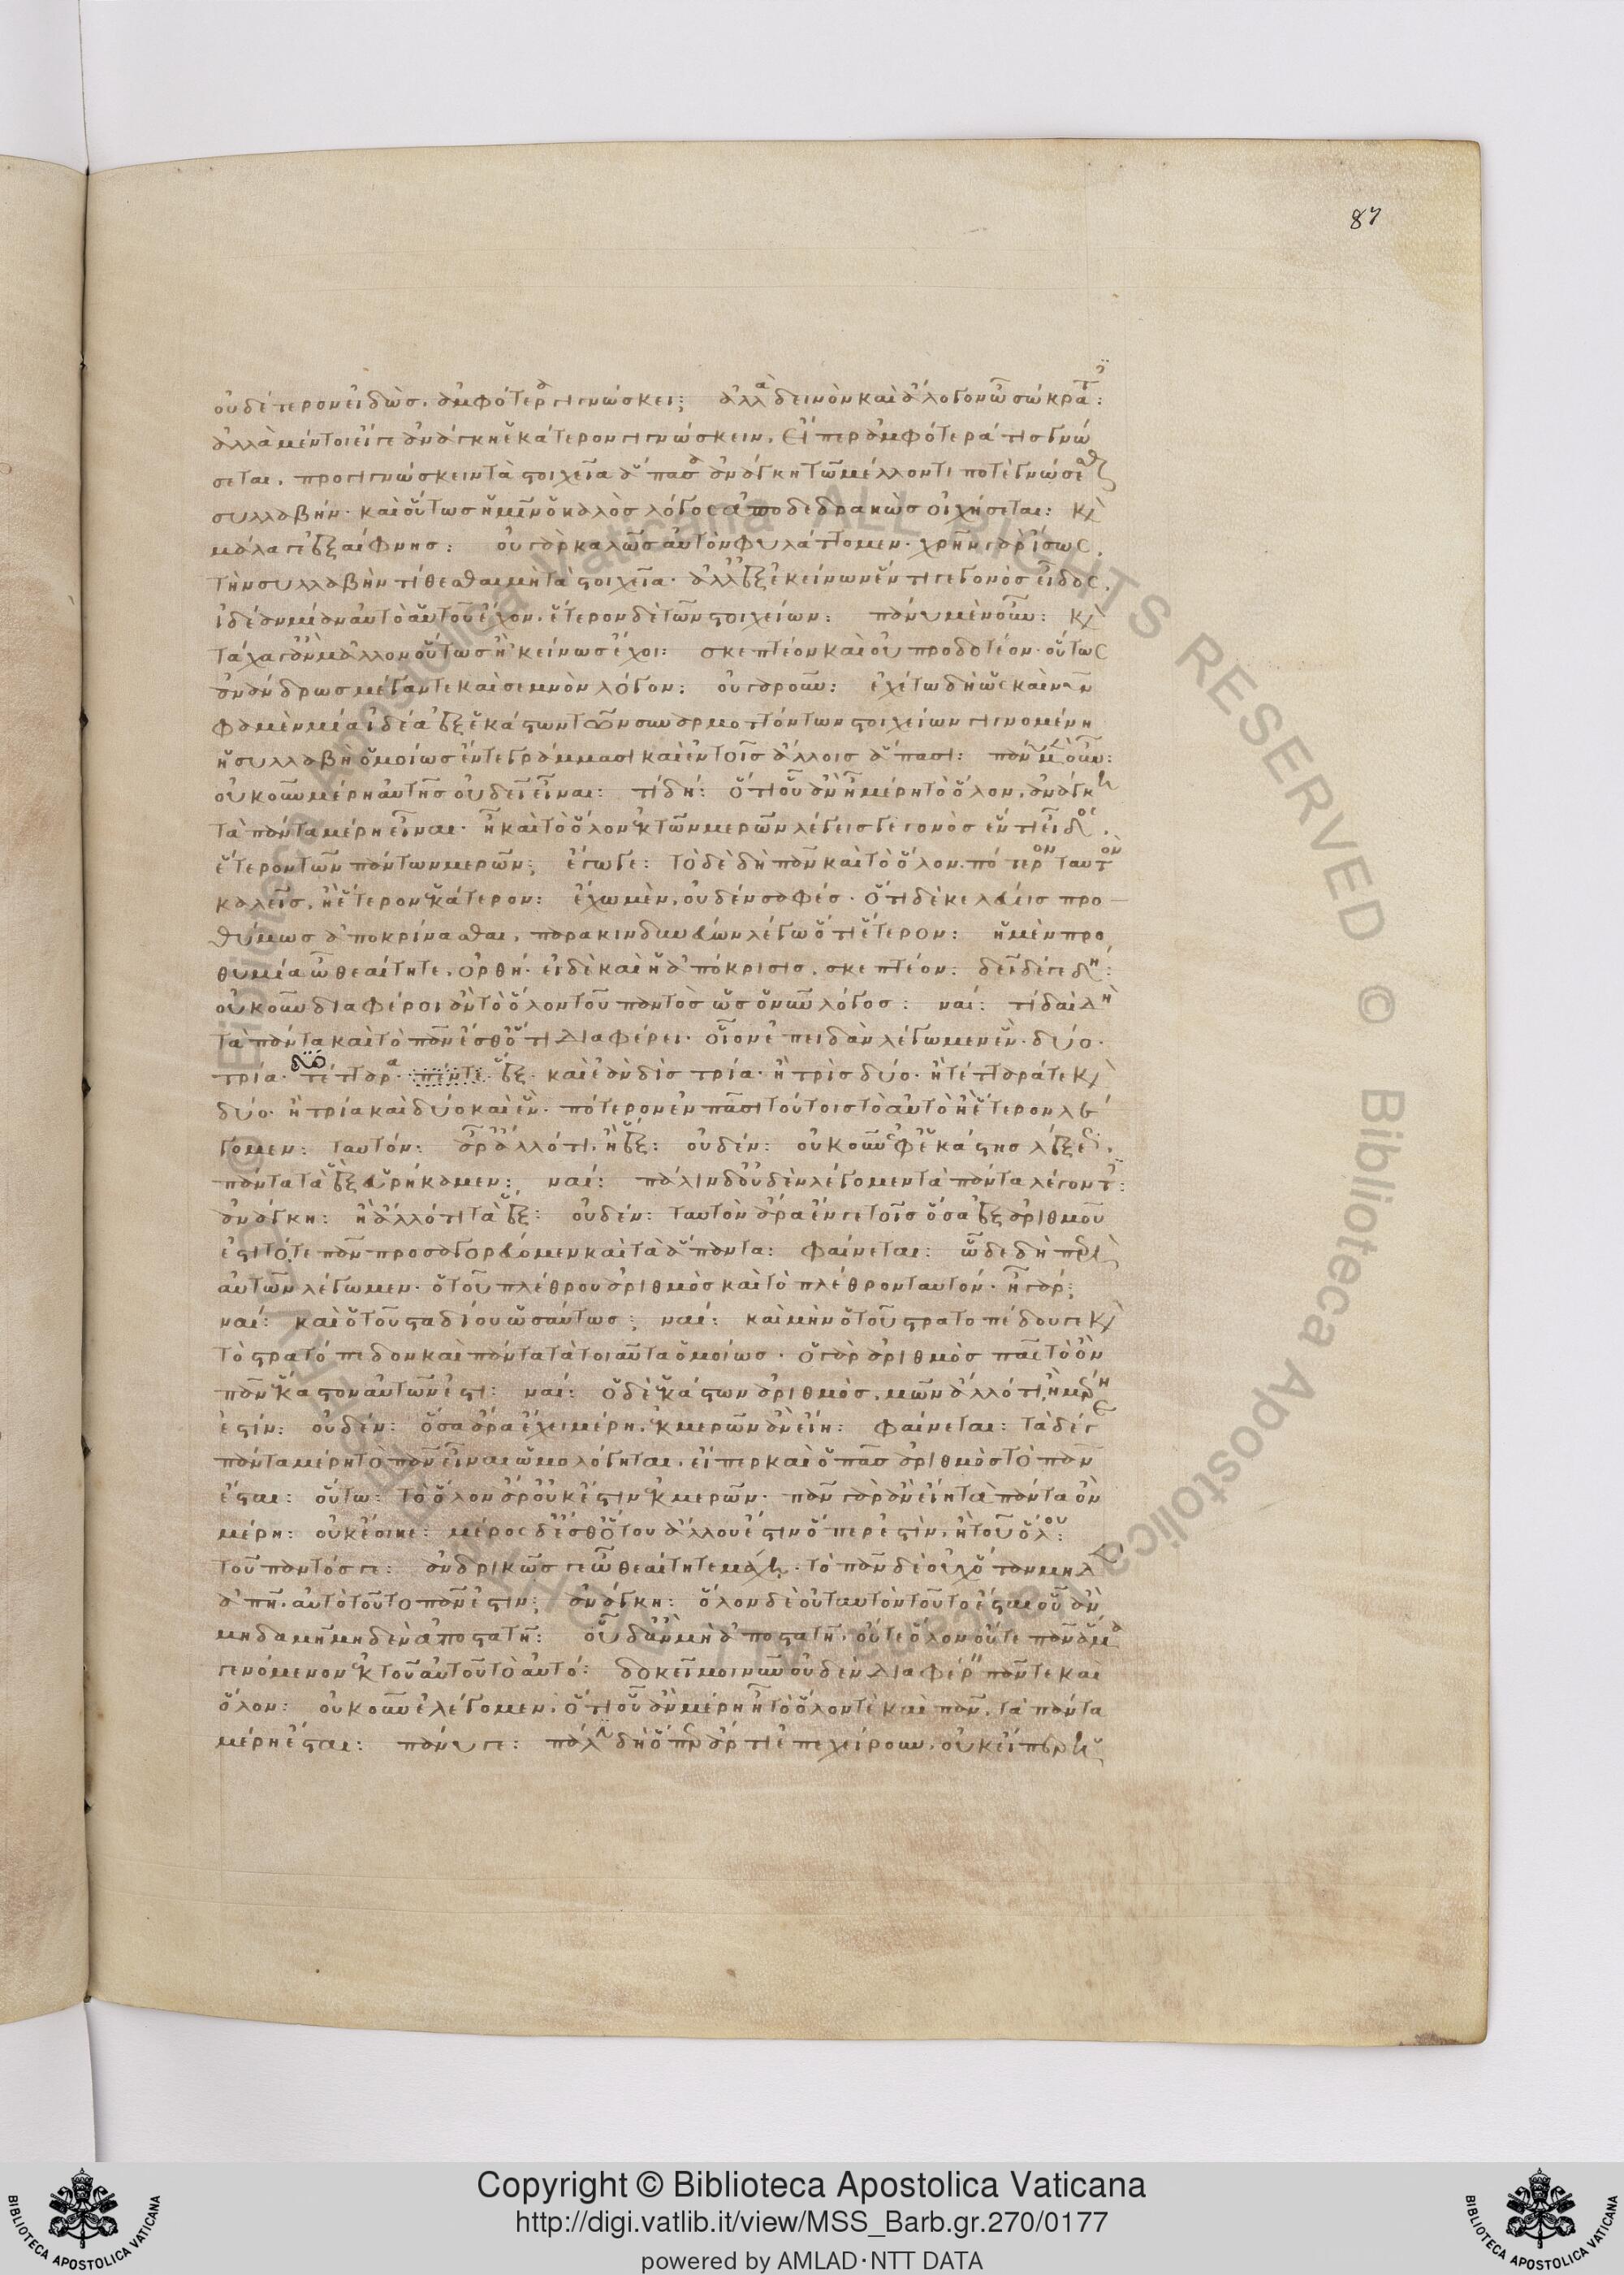 87
οὐδέτερον εἰδὼς, ἀμφότερα γιγνώσκει; ἀλλὰ δεινὸν καὶ ἄλογον ὦ σώκρατ:
ἀλλὰ μέντοι εἴγε ἀνάγκη ἑκάτερον γιγνώσκειν, εἴπερ ἀμφότερά τις γνώ
σεται, προγιγνώσκειν τὰ στοιχεῖα ἅπασα ἀνάγκη τῶ μέλλοντι ποτὲ γνώσεσθαι
συλλαβήν· καὶ οὕτως ἡμῖν ὁ καλὸς λόγος ἀποδεδρακὼς οἰχήσεται: καὶ
μάλα γε ἐξαίφνης: οὐ γὰρ καλῶς αὐτὸν φυλάττομεν· χρῆν γὰρ ἴσως,
τὴν συλλαβὴν τίθεσθαι μὴ τὰ στοιχεῖα· ἀλλ' ἐξ ἐκείνων ἕν τι γεγονὸς εἶδος,
ἰδέαν μίαν αὐτὸ αὑτοῦ ἔχον, ἕτερον δὲ τῶν στοιχείων: πάνυ μὲν οὖν: καὶ
τάχα γ' ἂν μᾶλλον οὕτως ἢ 'κείνως ἔχοι: σκεπτέον καὶ οὐ προδοτέον· οὕτως
ἀνάνδρως μέγαν τε καὶ σεμνὸν λόγον: οὐ γὰρ οὖν: ἐχέτω δὴ ὡς καὶ νῦν
φαμὲν μία ἰδέα ἐξ ἑκάστων τῶν συναρμοττόντων στοιχείων γιγνομένη
ἡ συλλαβὴ ὁμοίως ἔν τε γράμμασι καὶ ἐν τοῖς ἄλλοις ἅπασι: πάνυ μὲν οὖν:
οὐκοῦν μέρη αὐτῆς οὐ δεῖ εἶναι: τί δή: ὅτι οὗ ἂν ἦ μέρη τὸ ὅλον, ἀνάγκη
τὰ πάντα μέρη εἶναι· ἢ καὶ τὸ ὅλον ἐκ τῶν μερῶν λέγεις γεγονὸς ἕν τι εἶδος,
ἕτερον τῶν πάντων μερῶν; ἔγωγε: τὸ δὲ δὴ πᾶν καὶ τὸ ὅλον. πότερον ταυτὸν
καλεῖς, ἢ ἕτερον ἑκάτερον: ἔχω μὲν, οὐδὲν σαφές· ὅτι δὲ κελεύεις προ
θύμως ἀποκρίνασθαι, παρακινδυνεύων λέγω ὅτι ἕτερον: ἡ μὲν προ
θυμία ὦ θεαίτητε, ὀρθή· εἰ δὲ καὶ ἡ ἀπόκρισις, σκεπτέον: δεῖ δέ γε δή:
οὐκοῦν διαφέροι ἂν τὸ ὅλον τοῦ παντὸς ὡς ὁ νῦν λόγος: ναί: τί δαὶ δὴ
τὰ πάντα καὶ τὸ πᾶν ἔσθ' ὅτι διαφέρει· οἷον ἐπειδὰν λέγωμεν ἕν· δύο·
τρία· τέτταρα· πέντε· ἕξ· καὶ ἐὰν δὶς τρία· ἢ τρὶς δύο· ἢ τέτταρά τε καὶ
δύο· ἢ τρία καὶ δύο καὶ ἕν· πότερον ἐν πᾶσι τούτοις τὸ αὐτὸ ἢ ἕτερον λέ
γομεν: ταυτόν: ἆρ' ἄλλό τι, ἢ ἕξ: οὐδέν: οὐκοῦν ἐφ' ἑκάστης λέξεως,
πάντα τὰ ἓξ εἰρήκαμεν: ναί: πάλιν δ' οὐδὲν λέγομεν τὰ πάντα λέγοντ:
ἀνάγκη: ἢ ἄλλό τι τὰ ἕξ: οὐδέν: ταυτὸν ἄρα ἔν γε τοῖς ὅσα ἐξ ἀριθμοῦ
ἐστι τό τε πᾶν προσαγορεύομεν καὶ τὰ ἅπαντα: φαίνεται: ὧδε δὴ περὶ
αὐτῶν λέγωμεν· ὁ τοῦ πλέθρου ἀριθμὸς καὶ τὸ πλέθρον ταυτόν· ἦ γάρ;
ναί: καὶ ὁ τοῦ σταδίου ὡσαύτως: ναί: καὶ μὴν ὁ τοῦ στρατοπέδου γε καὶ
τὸ στρατόπεδον καὶ πάντα τὰ τοιαῦτα ὁμοίως· ὁ γὰρ ἀριθμὸς πᾶς τὸ ὂν
πᾶν ἕκαστον αὐτῶν ἐστι: ναί: ὁ δὲ ἑκάστων ἀριθμὸς, μῶν ἄλλό τι, ἢ μέρη
ἐστίν: οὐδέν: ὅσα ἄρα ἔχει μέρη, ἐκ μερῶν ἂν εἴη: φαίνεται: τὰ δέ γε
πάντα μέρη τὸ πᾶν εἶναι ὡμολόγηται, εἴπερ καὶ ὁ πᾶς ἀριθμὸς τὸ πᾶν
ἔσται: οὕτω: τὸ ὅλον ἄρ' οὐκ ἔστιν ἐκ μερῶν· πᾶν γὰρ ἂν εἴη τὰ πάντα ὂν
μέρη: οὐκ ἔοικε: μέρος δ' ἔσθ' ὅτου ἄλλου ἐστὶν ὅπερ ἐστὶν, ἢ τοῦ ὅλου:
τοῦ παντός γε: ἀνδρικῶς γε ὦ θεαίτητε μάχη· τὸ πᾶν δὲ οὐχ ὅταν μηδὲν
ἀπῆ, αὐτὸ τοῦτο πᾶν ἐστιν; ἀνάγκη: ὅλον δὲ οὐ ταυτὸν τοῦτο ἔσται οὗ ἂν
μηδαμῆ μηδὲν ἀποστατῆ: οὗ δ' ἂν μὴ ἀποστατῆ, οὔτε ὅλον οὔτε πᾶν ἅμα
γενόμενον ἐκ τοῦ αὐτοῦ τὸ αὐτό: δοκεῖ μοι νῦν οὐδὲν διαφέρειν πᾶν τε καὶ
ὅλον: οὐκοῦν ἐλέγομεν, ὅτι οὗ ἂν μέρη ἦ τὸ ὅλον τὲ καὶ πᾶν, τὰ πάντα
μέρη ἔσται: πάνυ γε: πάλιν δὴ ὅπερ ἄρτι ἐπεχείρουν, οὐκ εἴπερ ἡ
Copyright © Biblioteca Apostolica Vaticana
http://digi.vatlib.it/view/MSS_Barb.gr.270/0177
powered by AMLAD·NTT DATA
BIBLIOTECA APOSTOLICA VATICANA
BIBLIOTECA APOSTOLICA VATICANA